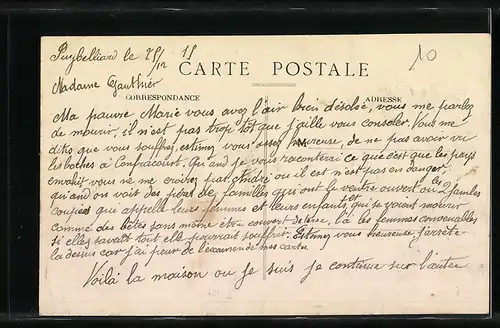 Puybelliard le 25/12 15
10
CARTE POSTALE
Madame Gauthier
CORRESPONDANCE
ADRESSE
Ma pauvre Marie vous avez l'air bien désolée, vous me parlez
de mourir, il n'est pas trop tôt que j'aille vous consoler. Vous me
dites que vous souffrez, estimez vous assez heureuse, de ne pas avoir vu
les boches à Confracourt. Quand je vous raconterai ce que c'est que les pays
envahit vous ne me croirez pas, où il est n'est pas en danger.
quand on voit des pères de familles qui ont le ventre ouvert ou les jambes
coupées qui appelle leurs femmes et leurs enfants, et qui se voient mourir
comme des bêtes sans même être couvert de terre, là les femmes convenables
si elles savait tout elle pourrait souffrir. Estimez vous heureuse j'arrête
la dessus car j'ai peur de l'examen de mes cartes
Voilà la maison ou je suis je continue sur l'autre